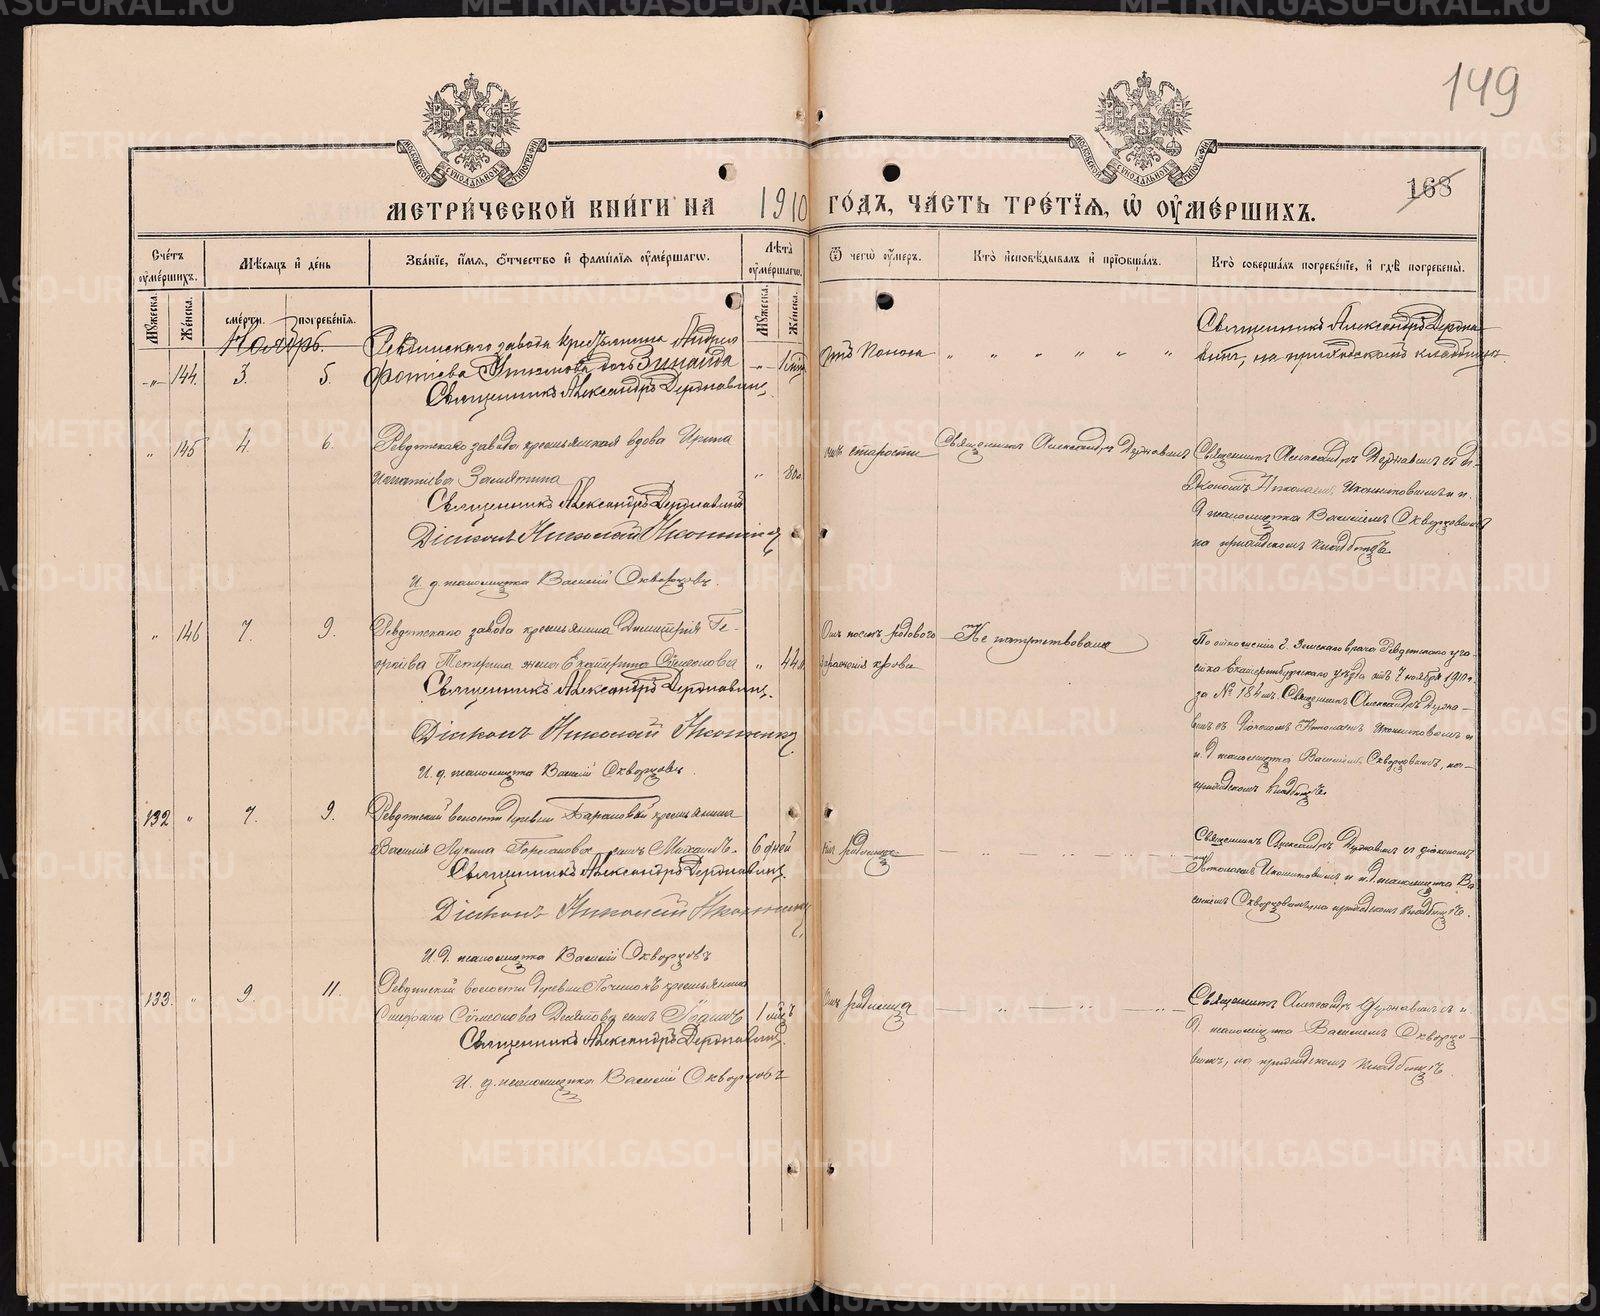 149
168
МОСКОВСКОЙ СѴНОДАЛЬНОЙ ТИПОГРАФІИ
МОСКОВСКОЙ СѴНОДАЛЬНОЙ ТИПОГРАФІИ
МЕТРИ́ЧЕСКОЙ КНИ́ГИ НА 1910 ГО́ДЪ, ЧА́СТЬ ТРЕ́ТІѦ, Ѡ ОУМЕ́РШИХЪ.
Сче́тъ оуме́ршихъ.
Мѣсѧцъ и де́нь
Зва́нїе, и́мѧ, о́тчество и фами́лїѧ оуме́ршагѡ.
Лѣта̀ оуме́ршагѡ.
Ѿ чегѡ̀ оу́меръ.
Кто̀ исповѣ́дывалъ и прїѡбща́лъ.
Кто̀ соверша́лъ погребе́нїе, и гдѣ̀ погребены̀.
Мꙋжеска.
Же́нска.
сме́рти.
погребе́нїѧ.
Мꙋжеска.
Же́нска.
Ноябрь.
-"- 144. 3. 5.
Ревдинскаго завода крестьянина Андрея
Фотиева дочь Зинаида
Священникъ Александръ Державинъ.
отъ поноса " " " " " "
Священникъ Александръ Держа-
винъ, на приходскомъ кладбищѣ.
" 145 4. 6.
Ревдинскаго завода крестьянская вдова Ирина
Игнатиева Замятина " 80.
Священникъ Александръ Державинъ
Діаконъ Николай
И. д. псаломщика Василій Скворцовъ.
отъ старости
Священникъ Александръ Державинъ
Священникъ Александръ Державинъ съ ді-
акономъ Николаемъ и и.
д. псаломщика Василіемъ Скворцовымъ
на приходскомъ кладбищѣ.
" 146 7. 9.
Ревдинскаго завода крестьянина Димитрія Ге-
оргіева жена Екатерина Симеонова " 44
Священникъ Александръ Державинъ.
Діаконъ Николай
И. д. псаломщика Василій Скворцовъ.
Отъ послѣ родового
зараженія крови
Не напутствована
По отношенію г. Земскаго врача Ревдинскаго уча-
стка Екатеринбургскаго уѣзда отъ 7 ноября 1910 г.
за № 184 Священникъ Александръ Держа-
винъ съ діакономъ Николаемъ и
и. д. псаломщика Василіемъ Скворцовымъ, на
приходскомъ кладбищѣ.
132 " 7. 9.
Ревдинской волости деревни Барановой крестьянина
Василія Лукина сынъ Михаилъ. 6 дней
Священникъ Александръ Державинъ.
Діаконъ Николай
И. д. псаломщика Василій Скворцовъ
отъ родимца
Священникъ Александръ Державинъ съ діакономъ
Николаемъ и и. д. псаломщика Ва-
силіемъ Скворцовымъ, на приходскомъ кладбищѣ.
133. " 9. 11.
Ревдинской волости деревни Починокъ крестьянина
Симеонова сынъ 1
Священникъ Александръ Державинъ.
И. д. псаломщика Василій Скворцовъ
отъ родимца
Священникъ Александръ Державинъ съ и.
д. псаломщика Василіемъ Скворцо-
вымъ, на приходскомъ кладбищѣ.
METRIKI.GASO-URAL.RU